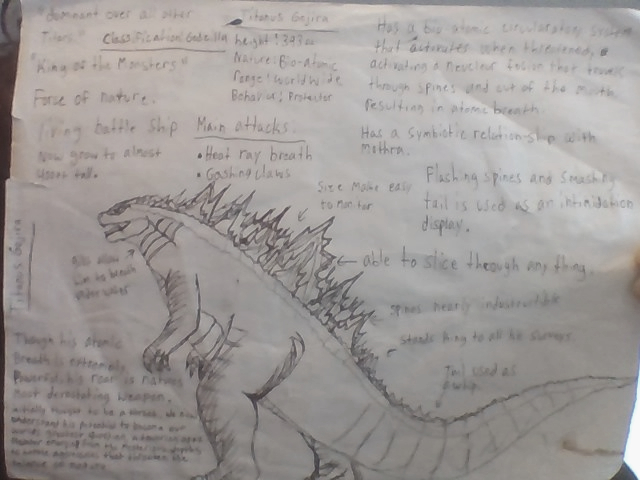 "dominant over all other
Titans."
Classification: Godzilla
"King of the Monsters"
Force of nature.
living battle ship
Now grow to almost
tall.
Titanus Gojira
height: 393
Nature: Bio-atomic
range: World wide
Behavior: Protector
Main attacks:
• Heat ray breath
• Gashing claws
Has a bio atomic circulatory system
that activates when threatened,
activating a nuclear fusion that travels
through spines and out of the mouth
resulting in atomic breath.
Has a symbiotic relationship with
mothra.
Flashing spines and smashing
tail is used as an intimidation
display.
Size make easy
to monitor
able to slice through any thing.
spines nearly
stands king to all he surveys
Tail used as
a whip.
Gills allow
him to breath
under water
Titanus Gojira
Though his atomic
breath is extremely
powerful, his roar is natures
most devastating weapon.
thought to be a threat, we now
understand his potential to become our